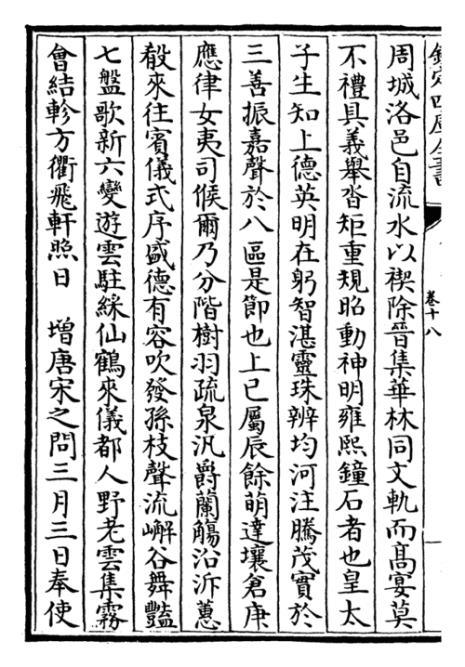 欽定四庫全書
卷十八
周城洛邑自流水以禊除晉集華林同文軌而髙宴莫
不禮具義舉沓矩重規昭動神明雍熙鐘石者也皇太
子生知上德英明在躬智湛靈珠辨均河注騰茂實於
三善振嘉聲於八區是節也上巳屬辰餘萌達壤倉庚
應律女夷司候爾乃分階樹羽疏泉汎爵蘭觴沿泝蕙
殽來往賓儀式序盛德有容吹發孫枝聲流嶰谷舞豔
七盤歌新六變遊雲駐綵仙鶴來儀都人野老雲集霧
會結軫方衢飛軒照日　增唐宋之問三月三日奉使